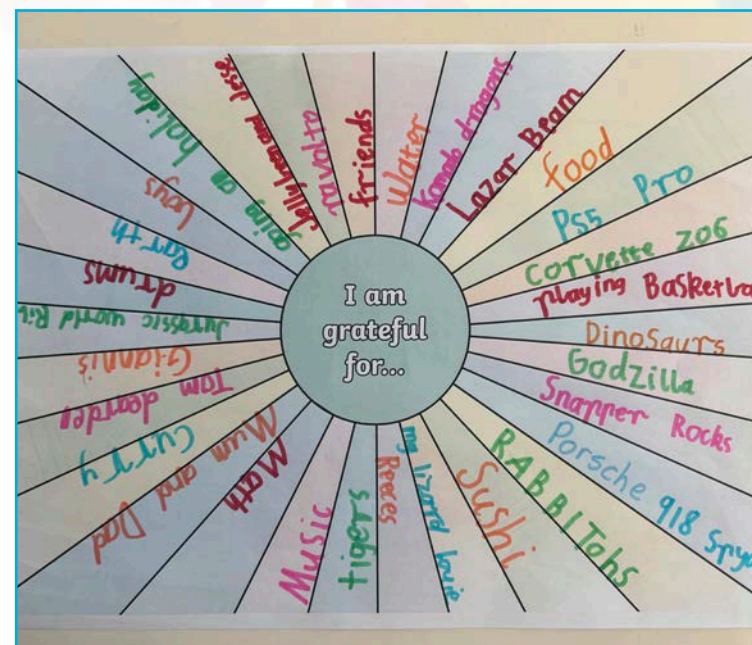 I am
grateful
for...
friends
water
Komodo dragons
Lazar Beam
food
PS5 Pro
Corvette Z06
playing Basketba
Dinosaurs
Godzilla
Snapper Rocks
Porsche 918 Spyd
RABBITohs
Sushi
my lizard
Reeces
tigers
Music
Math
Mum and Dad
Curry
Tom
Giannis
Jurassic world
drums
Earth
going on holiday
and jesse